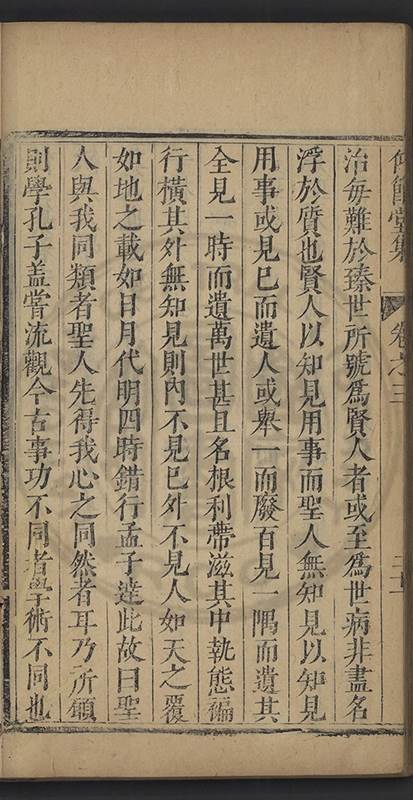 堂集 卷之三
治每難於臻世所號爲賢人者或至爲世病非盡名
浮於質也賢人以知見用事而聖人無知見以知見
用事或見已而遺人或舉一而廢百見一隅而遺其
全見一時而遺萬世甚且名根利蔕滋其中執態褊
行橫其外無知見則內不見已外不見人如天之覆
如地之載如日月代明四時錯行孟子達此故曰聖
人與我同類者聖人先得我心之同然者耳乃所願
則學孔子盖嘗流觀今古事功不同者學術不同也